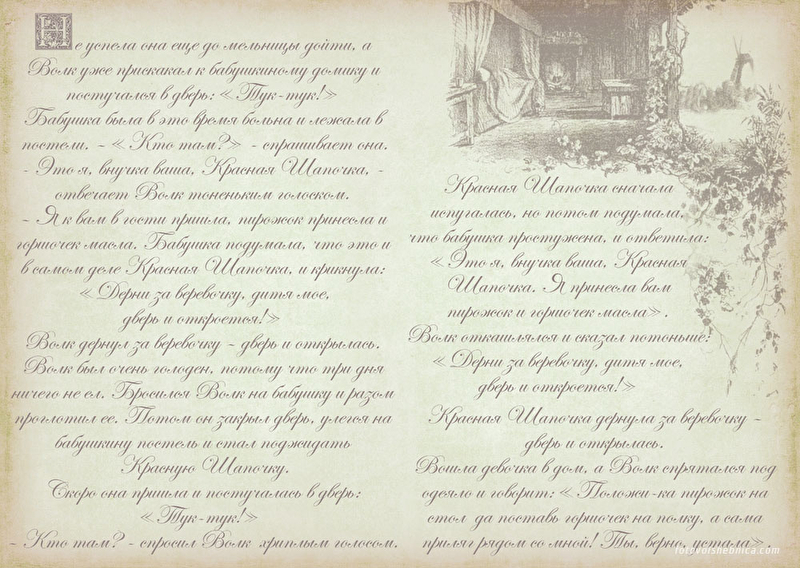 Не успела она еще до мельницы дойти, а
Волк уже прискакал к бабушкиному домику и
постучался в дверь: « Тук-тук!»
Бабушка была в это время больна и лежала в
постели. - « Кто там?» - спрашивает она.
- Это я, внучка ваша, Красная Шапочка, -
отвечает Волк тоненьким голоском.
- Я к вам в гости пришла, пирожок принесла и
горшочек масла. Бабушка подумала, что это и
в самом деле Красная Шапочка, и крикнула:
« Дерни за веревочку, дитя мое,
дверь и откроется!»
Волк дернул за веревочку - дверь и открылась.
Волк был очень голоден, потому что три дня
ничего не ел. Бросился Волк на бабушку и разом
проглотил ее. Потом он закрыл дверь, улегся на
бабушкину постель и стал поджидать
Красную Шапочку.
Скоро она пришла и постучалась в дверь:
« Тук-тук!»
- Кто там? - спросил Волк хриплым голосом.
Красная Шапочка сначала
испугалась, но потом подумала,
что бабушка простужена, и ответила:
« Это я, внучка ваша, Красная
Шапочка. Я принесла вам
пирожок и горшочек масла» .
Волк откашлялся и сказал потоньше:
« Дерни за веревочку, дитя мое,
дверь и откроется!»
Красная Шапочка дернула за веревочку -
дверь и открылась.
Вошла девочка в дом, а Волк спрятался под
одеяло и говорит: « Положи-ка пирожок на
стол да поставь горшочек на полку, а сама
приляг рядом со мной! Ты, верно, устала».
fotovolshebnica.com